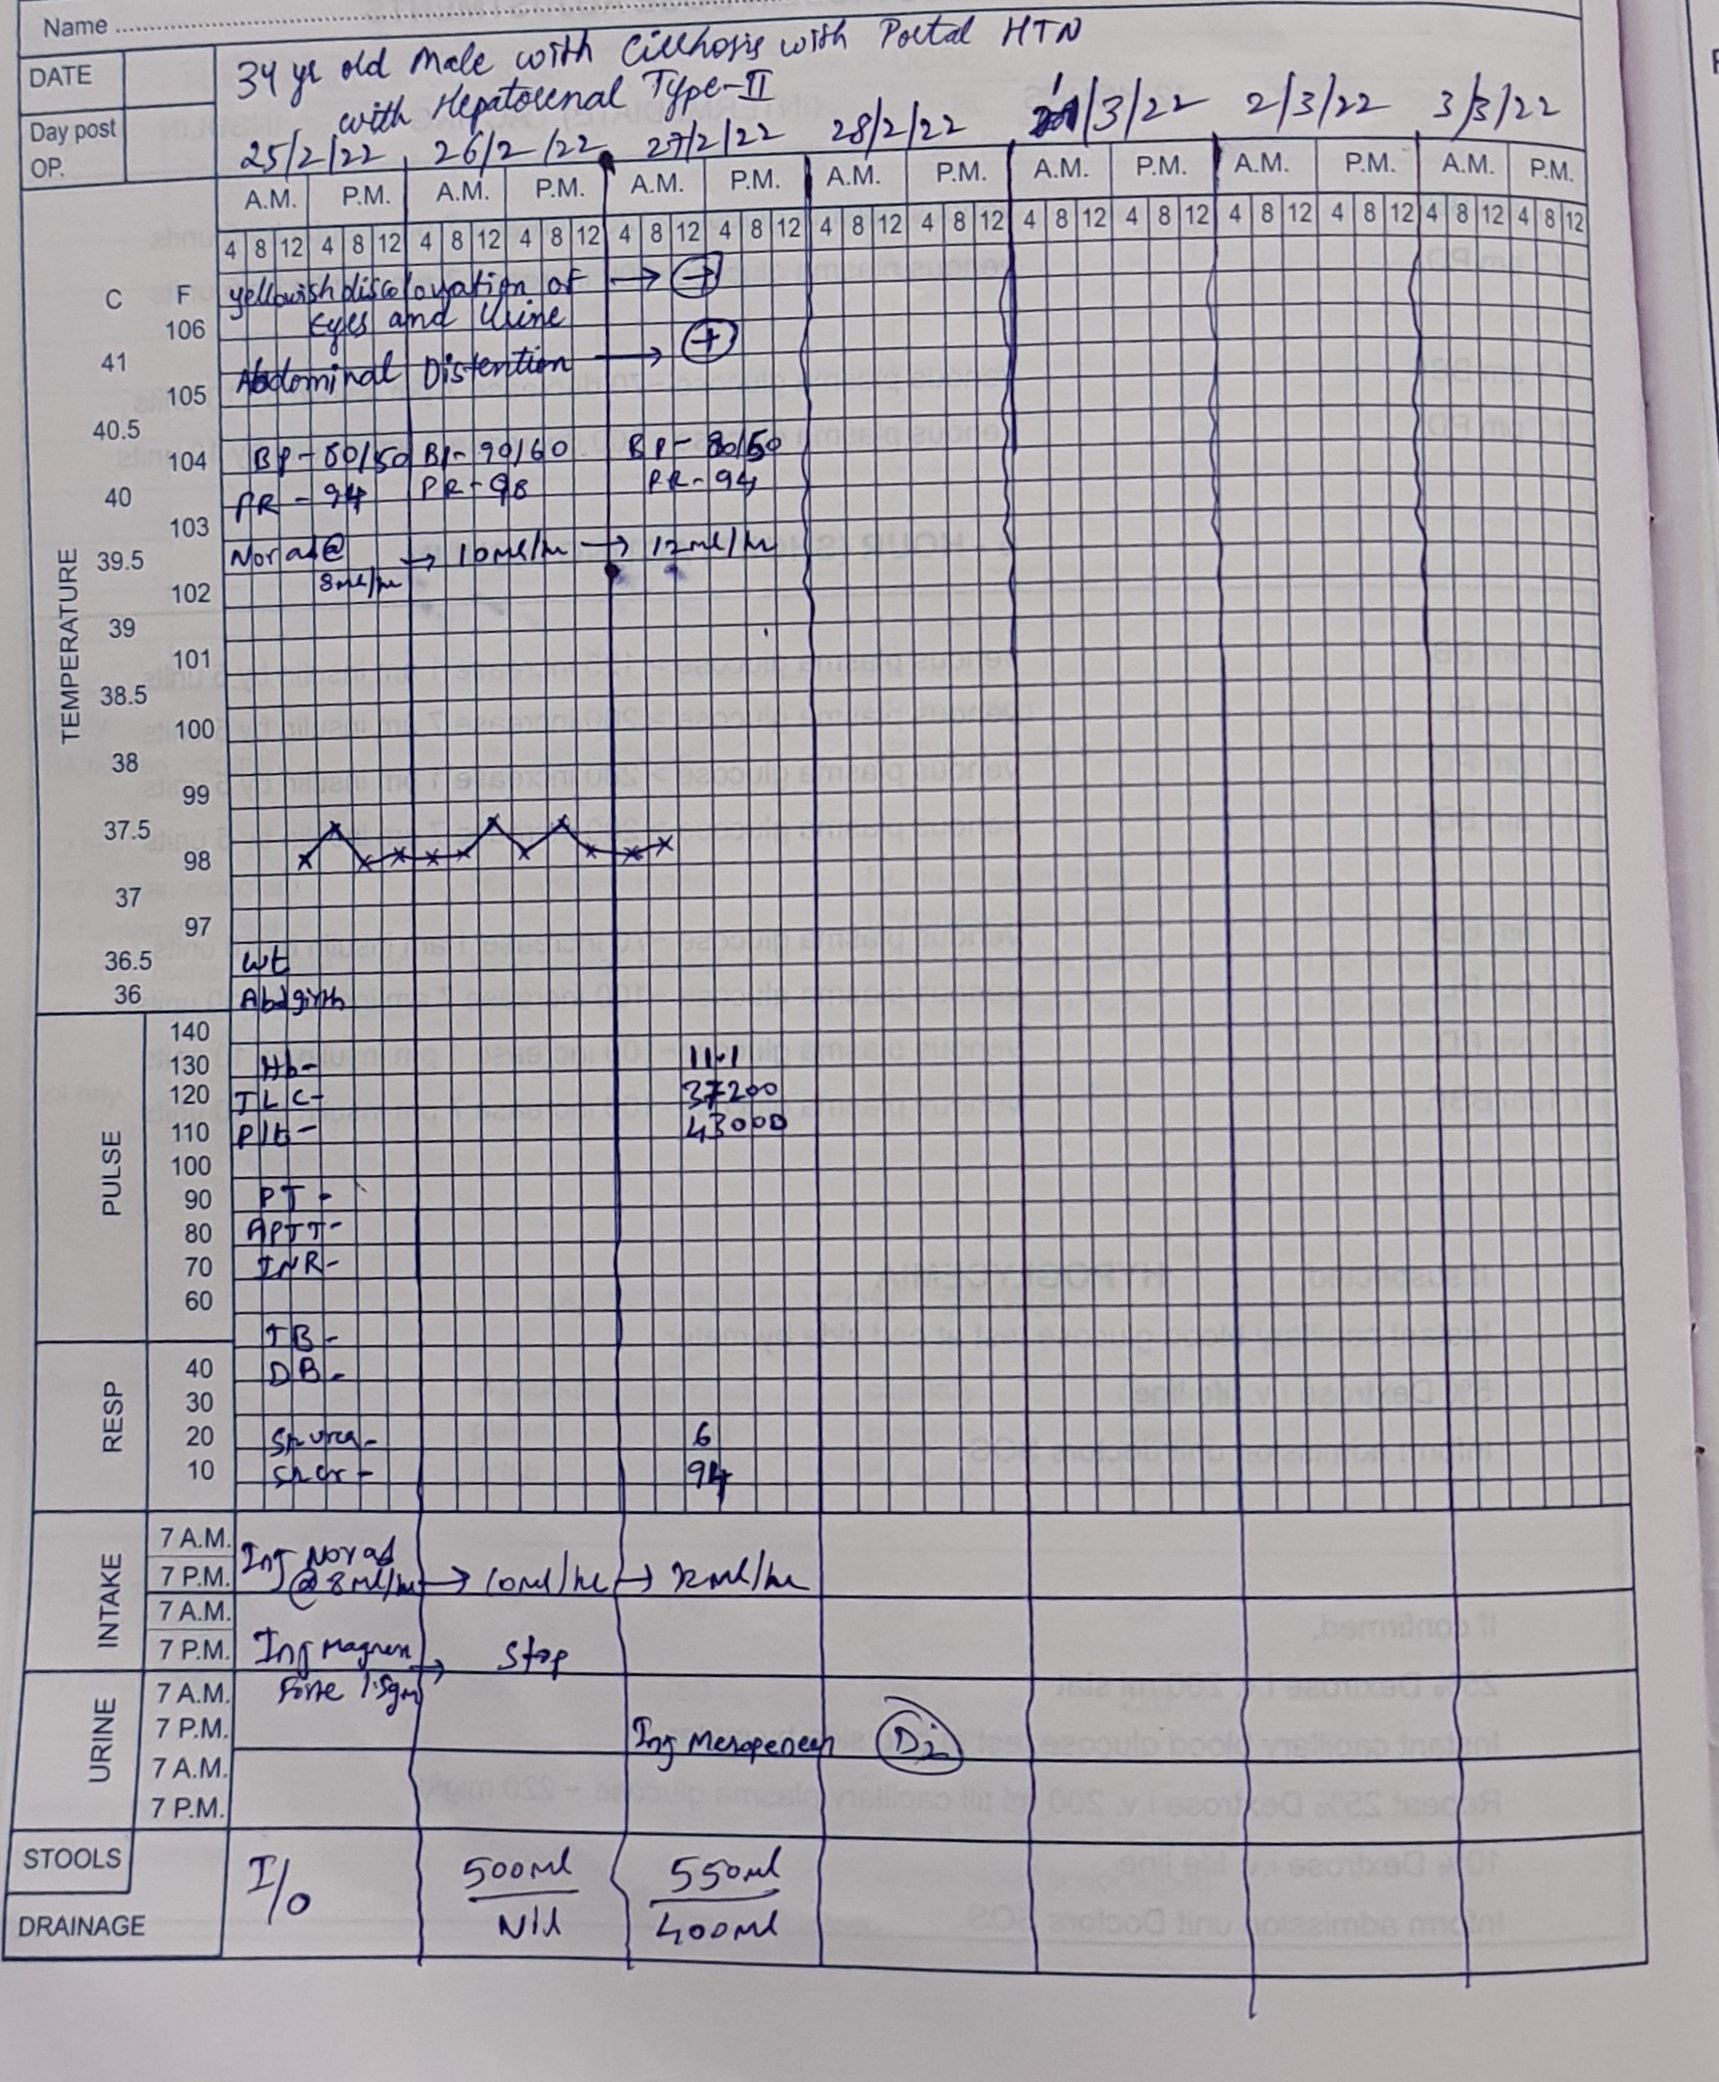 Name
DATE
34 yr old Male with Cirrhosis with Portal HTN
with Hepatorenal Type-II
Day post OP.
25/2/22 26/2/22 27/2/22 28/2/22 1/3/22 2/3/22 3/3/22
A.M. P.M. A.M. P.M. A.M. P.M. A.M. P.M. A.M. P.M. A.M. P.M. A.M. P.M.
4 8 12 4 8 12 4 8 12 4 8 12 4 8 12 4 8 12 4 8 12 4 8 12 4 8 12 4 8 12 4 8 12 4 8 12 4 8 12 4 8 12
TEMPERATURE
C F yellowish discolovation of → (+)
106 Eyes and Urine
41 Abdominal Distention → (+)
105
40.5
104 BP-80/50 BP-90/60 BP-80/50
40 PR-94 PR-98 PR-94
103
39.5 Norad@ 8ml/hr → 10ml/hr → 12ml/hr
102
39
101
38.5
100
38
99
37.5
98
37
97
36.5 Wt
36 Abdgirth
PULSE
140
130 Hb- 11.1
120 TLC- 37200
110 Plt- 43000
100
90 PT-
80 APTT-
70 INR-
60
TB-
RESP
40 DB-
30
20 Sr urea- 6
10 Sr cr- 94
INTAKE
7 A.M. Inj Norad
7 P.M. @ 8ml/hr → 10ml/hr → 12ml/hr
7 A.M.
7 P.M. Inj Magnex → Stop
URINE
7 A.M. Forte 1.5gm
7 P.M. Inj Meropenem D2
7 A.M.
7 P.M.
STOOLS
I/O 500ml 550ml
DRAINAGE
Nil 400ml